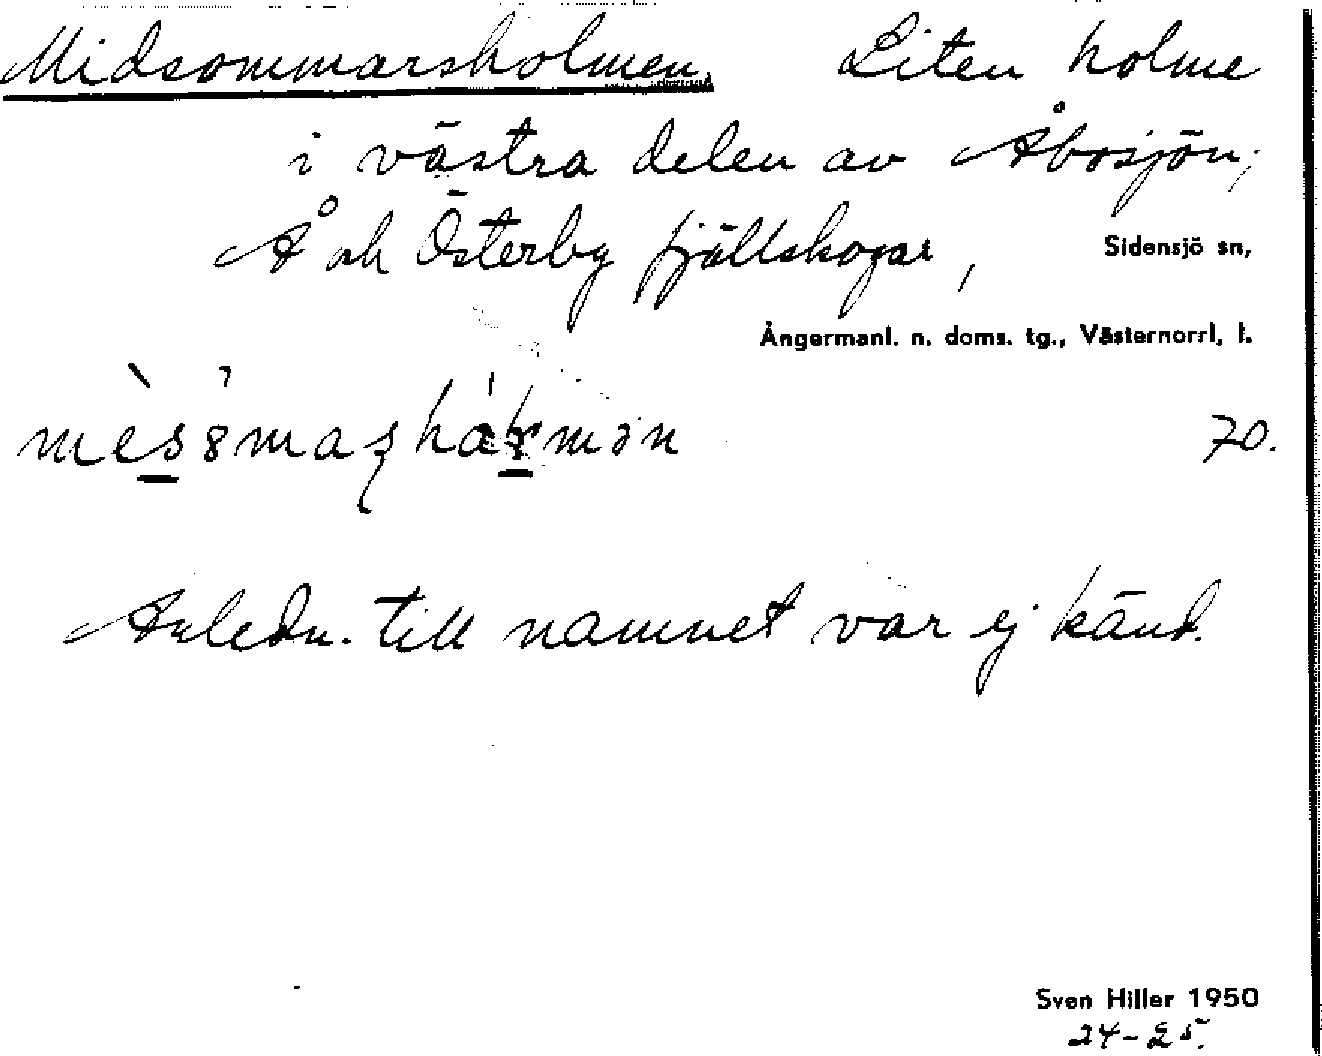 Midsommarsholmen Liten holme
i västra delen av Åbosjön,
Å och Österby fjällskogar, Sidensjö sn,
Ångermanl. n. doms. tg., Västernorrl. l.
70.
Anledn. till namnet var ej känd.
Sven Hiller 1950
24-25.